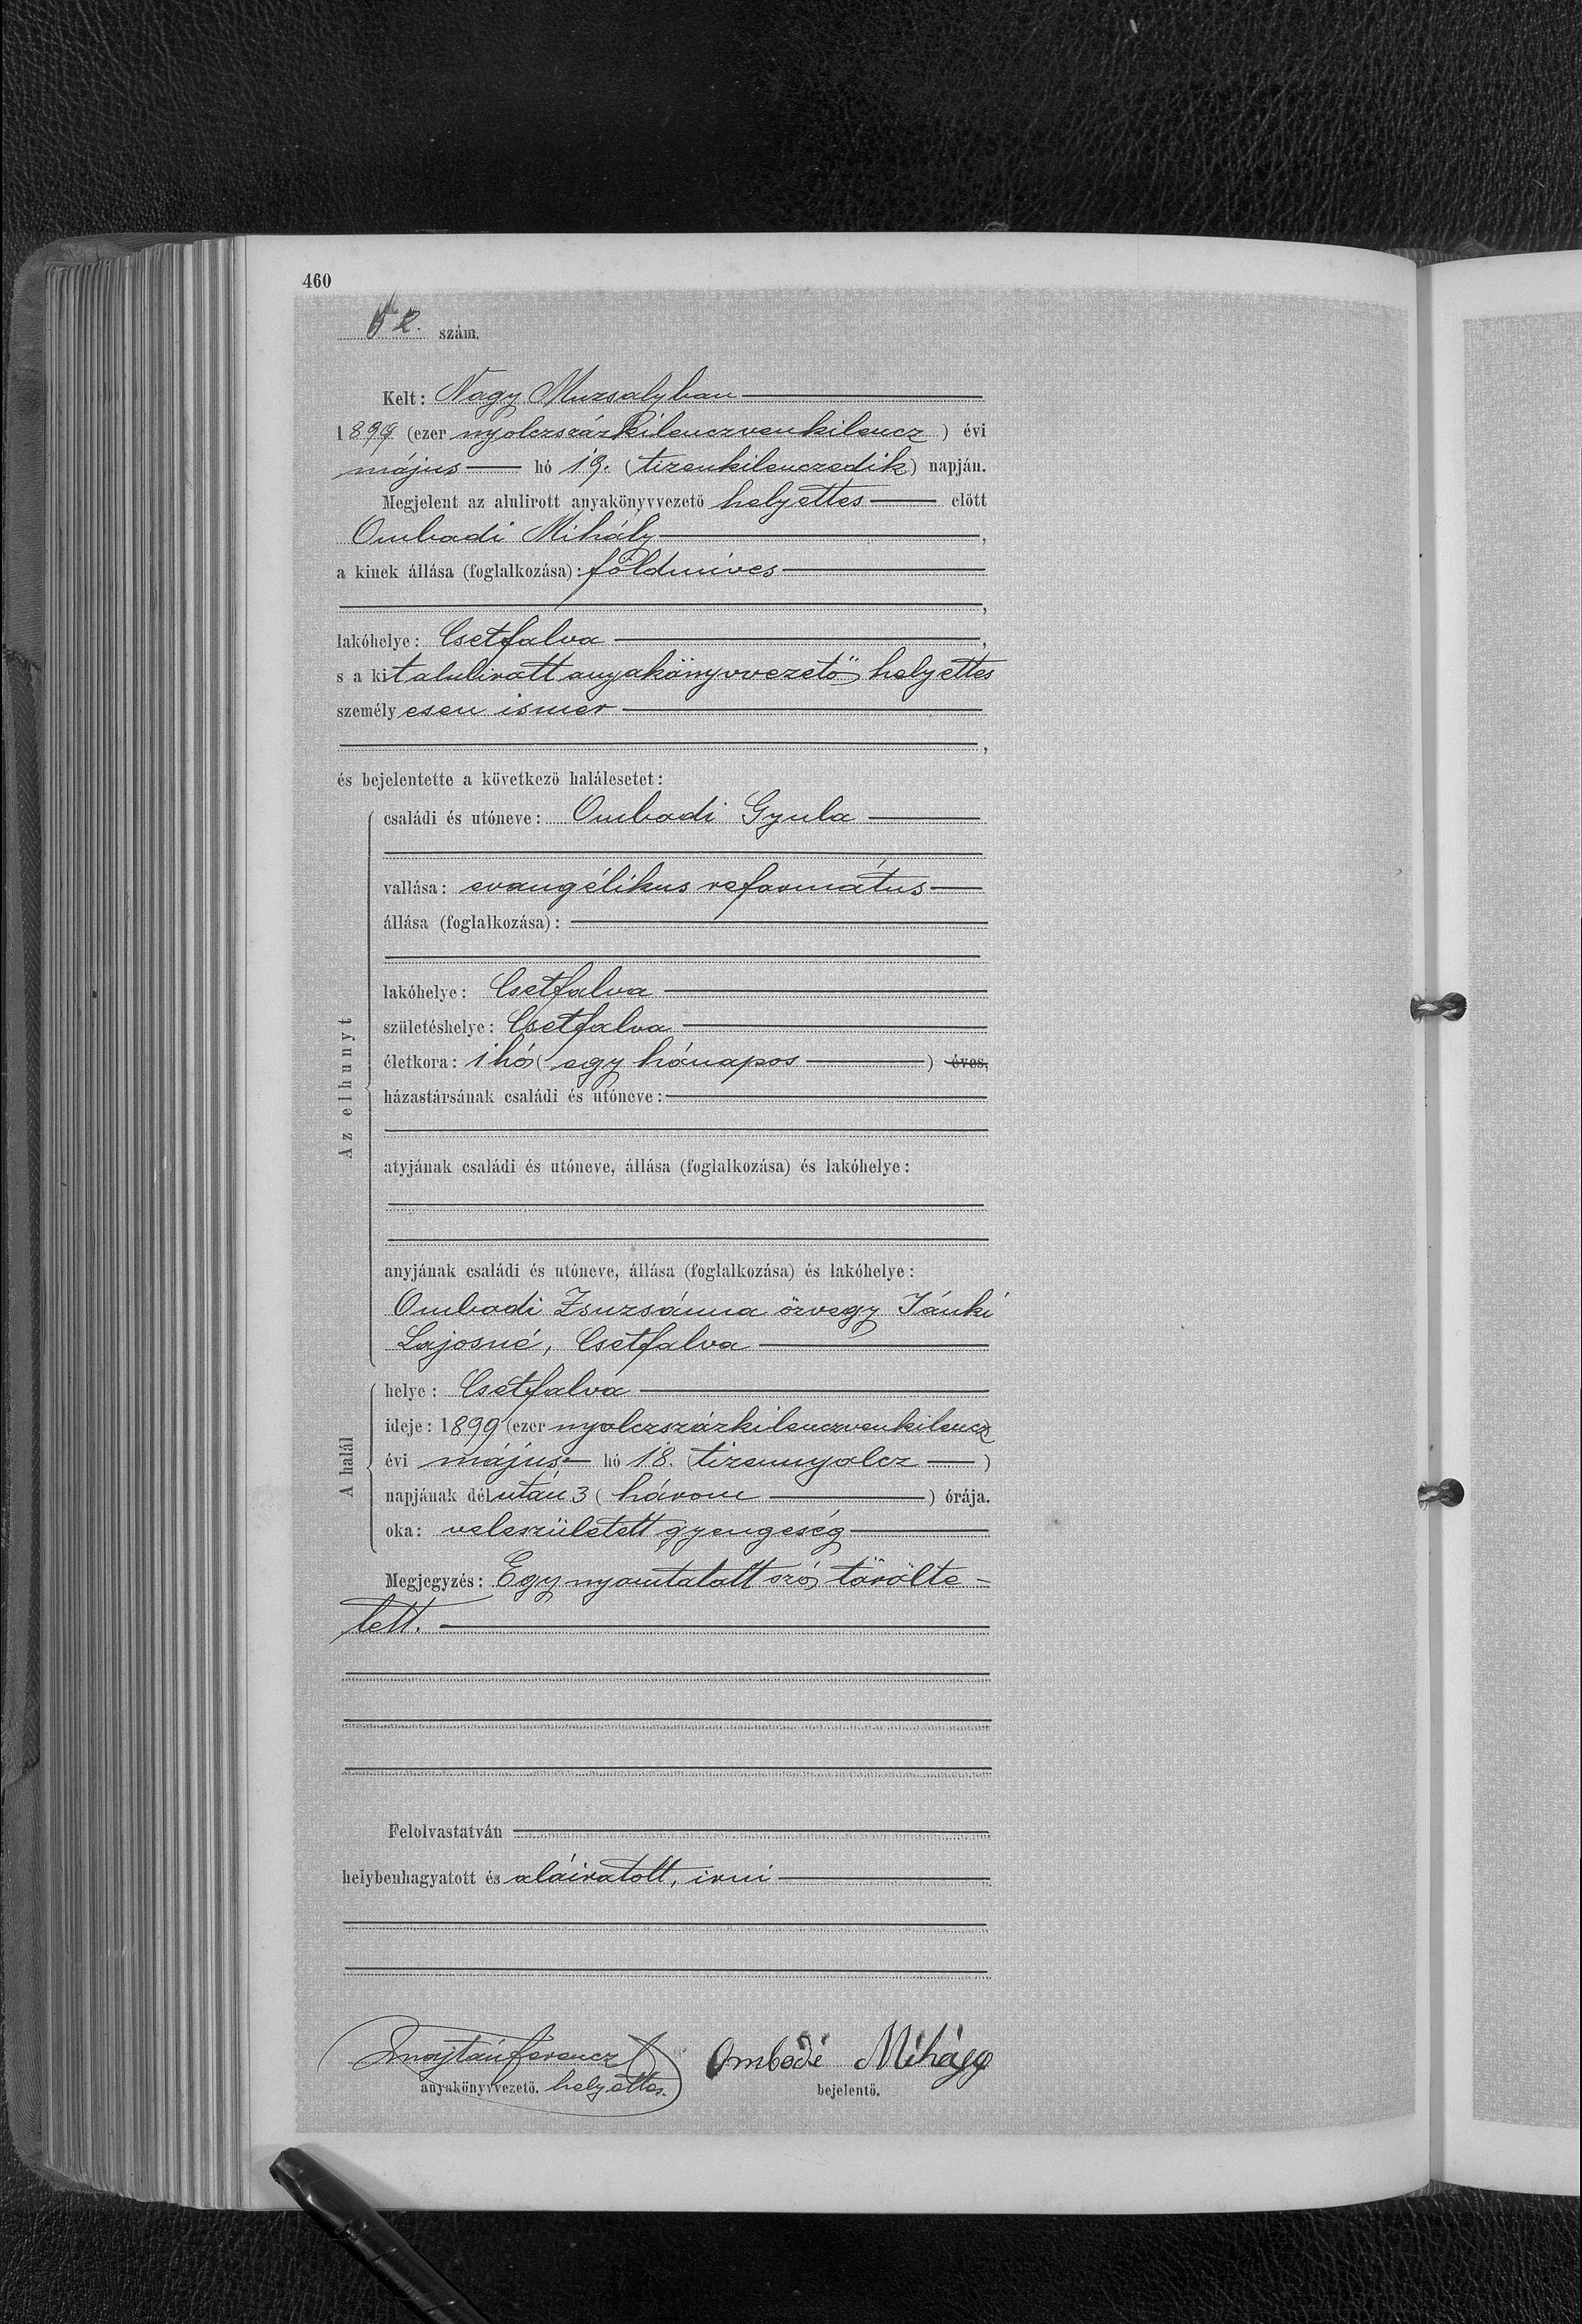 460
52. szám.
Kelt: Nagy Muzsalyban
1899 (ezer nyolczszázkilenczvenkilencz) évi
május hó 19. (tizenkilenczedik) napján.
Megjelent az alulirott anyakönyvvezető helyettes előtt
Ombadi Mihály,
a kinek állása (foglalkozása): földmives
,
lakóhelye: Csetfalva,
s a kit alulirott anyakönyvvezető helyettes
személyesen ismer
,
és bejelentette a következő halálesetet:
Az elhunyt
családi és utóneve: Ombadi Gyula
vallása: evangélikus református
állása (foglalkozása):
lakóhelye: Csetfalva
születéshelye: Csetfalva
életkora: 1 hó (egy hónapos) éves,
házastársának családi és utóneve:
atyjának családi és utóneve, állása (foglalkozása) és lakóhelye:
anyjának családi és utóneve, állása (foglalkozása) és lakóhelye:
Ombadi Zsuzsánna özvegy Jánki
Lajosné, Csetfalva
A halál
helye: Csetfalva
ideje: 1899 (ezer nyolczszázkilenczvenkilencz)
évi május hó 18. (tizennyolcz)
napjának délután 3 (három) órája.
oka: veleszületett gyengeség
Megjegyzés: Egy nyomtatott szó törölte-
tett.
Felolvastatván
helybenhagyatott és aláiratott, irni
Ferencz Ombodi Mihály
anyakönyvvezető. helyettes. bejelentő.